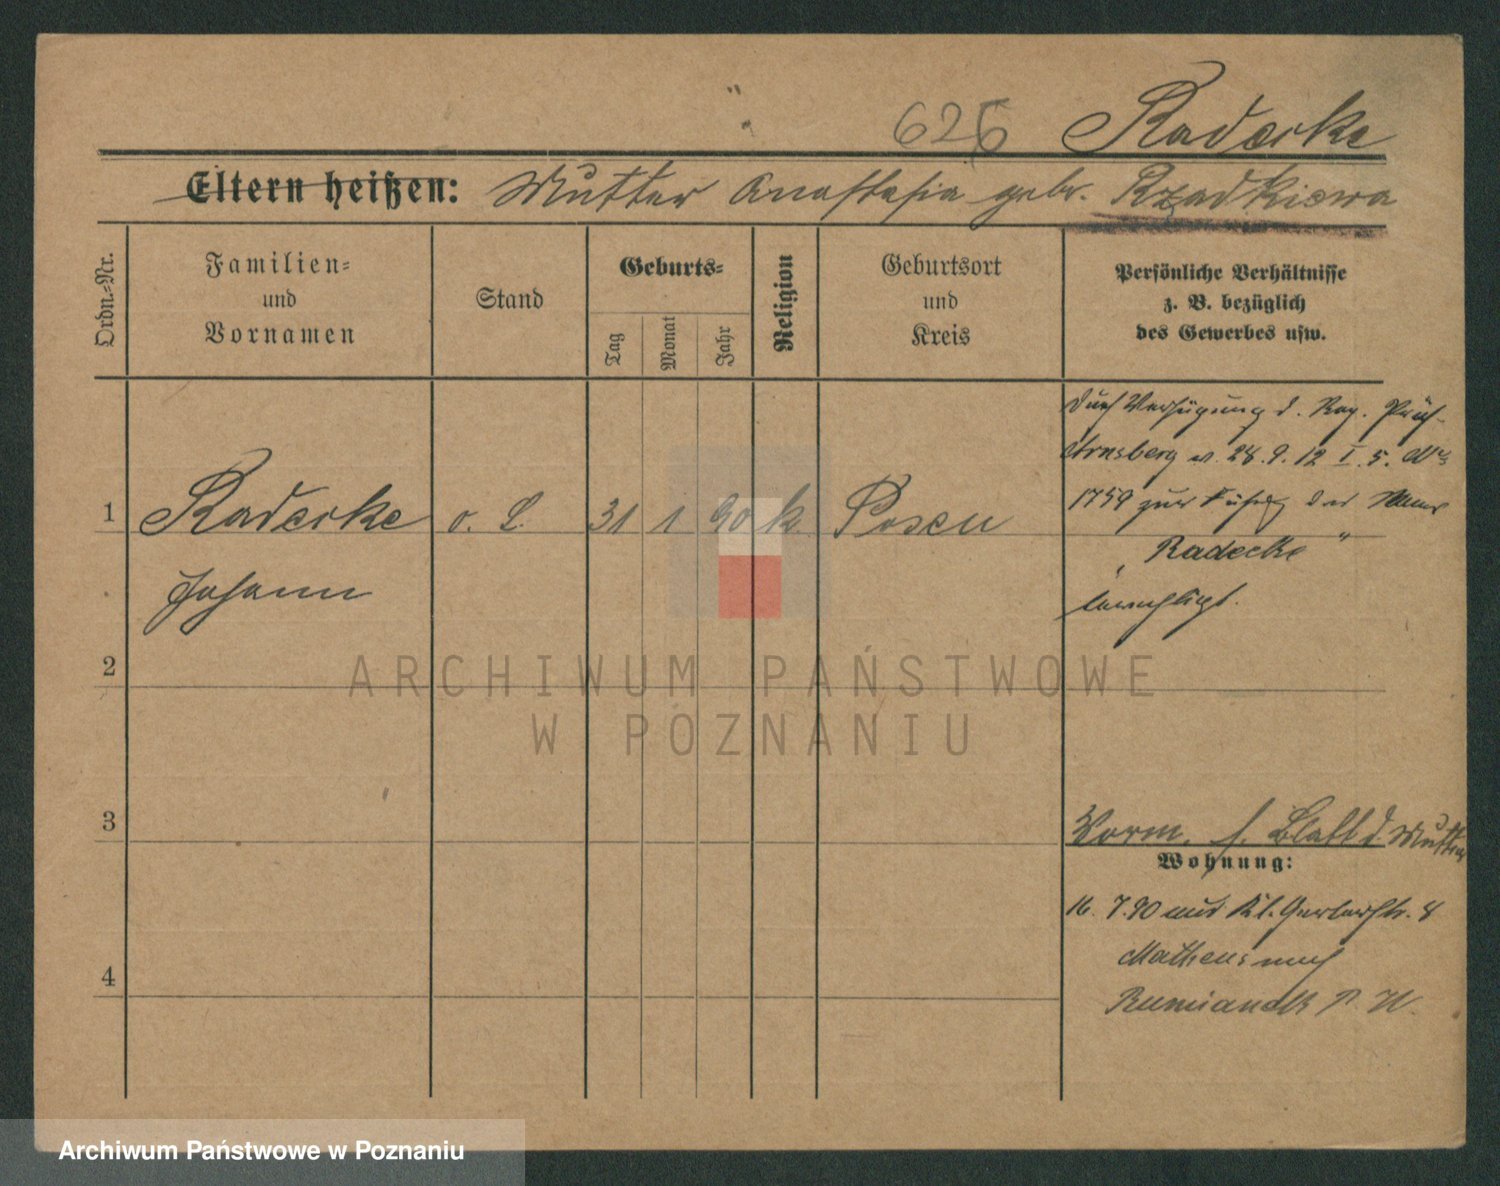 626 Radecke
Eltern heißen: Mutter Anastasia gebr. Rzadkiewa
Ordn.-Nr.
Familien-
und
Vornamen
Stand
Geburts-
Tag
Monat
Jahr
Religion
Geburtsort
und
Kreis
Persönliche Verhältnisse
z. B. bezüglich
des Gewerbes usw.
Durch Verfügung d. Reg. Präs.
Arnsberg v. 28. 9. 12 I. 5. No
1759 zur Führg des
„Radecke“
berechtigt.
1 Radecke o. S. 31 1 90 k Posen
Johann
2
3
Vorm. s. Blatt d. Mutter
Wohnung:
16. 7. 90 aus Kl. Gerberstr. 8
Matheus nach
4
ARCHIWUM PAŃSTWOWE
W POZNANIU
Archiwum Państwowe w Poznaniu